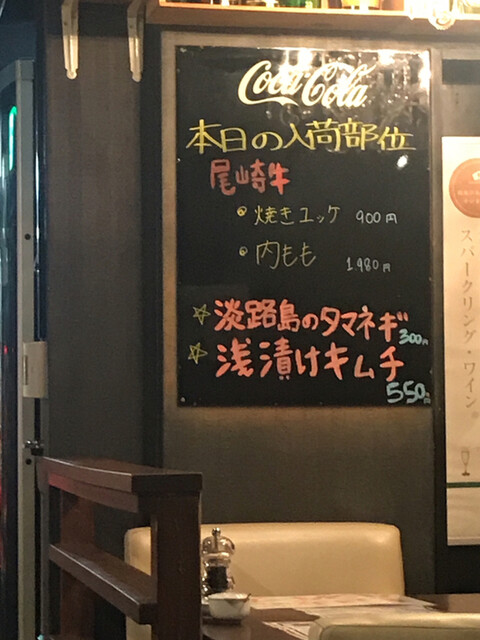 Coca-Cola
本日の入荷部位
尾崎牛
焼きユッケ 900円
内もも 1,980円
☆淡路島のタマネギ 300円
☆浅漬けキムチ 550円
スパークリング・ワイン。